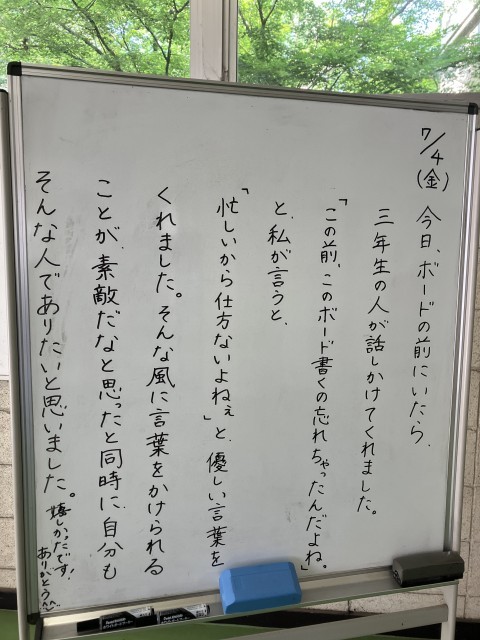 7/4(金) 今日、ボードの前にいたら、
三年生の人が話しかけてくれました。
「この前、このボード書くの忘れちゃったんだよね」
と、私が言うと、
「忙しいから仕方ないよねぇ」と、優しい言葉を
くれました。そんな風に言葉をかけられる
ことが、素敵だなと思ったと同時に、自分も
そんな人でありたいと思いました。
嬉しかったです!
ありがとう